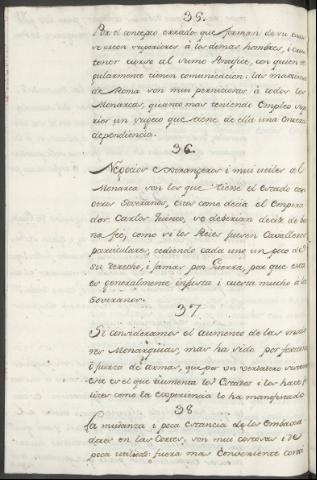 35.
Por el concepto errado que forman de su
se creen superiores á los demas hombres, i
tener curso al sumo Pontifice, con quien re
gularmente tienen comunicacion: las maximas
de Roma son mui perniciosas á todos los
Monarcas, quanto mas teniendo Empleo supe
rior un sugeto que tiene de ella una entera
dependencia.
36.
Negocios Estrangeros i mui utiles al
Monarca son los que tiene el Estado con
otros Soveranos, estos como decia el Empera
dor Carlos Quinto, se deberian decidir de bue
na fee, como si los Reies fuesen Cavalleros
particulares, cediendo cada uno un poco de
su derecho, i jamas por Guerra, por que esta
es generalmente injusta i cuesta mucho á los
Soveranos.
37
Si consideramos el aumento de las
res Monarquias, mas ha sido por fortuna
ó fuerza de armas, que por un verdadero sistema
este es el que aumenta los Estados i los hace fe
lices como la esperiencia lo ha manifestado
38
La mudanza i poca estancia de los Embaxa
dores en las Cortes, son mui costosas i de
poca utilidad: fuera mas conveniente